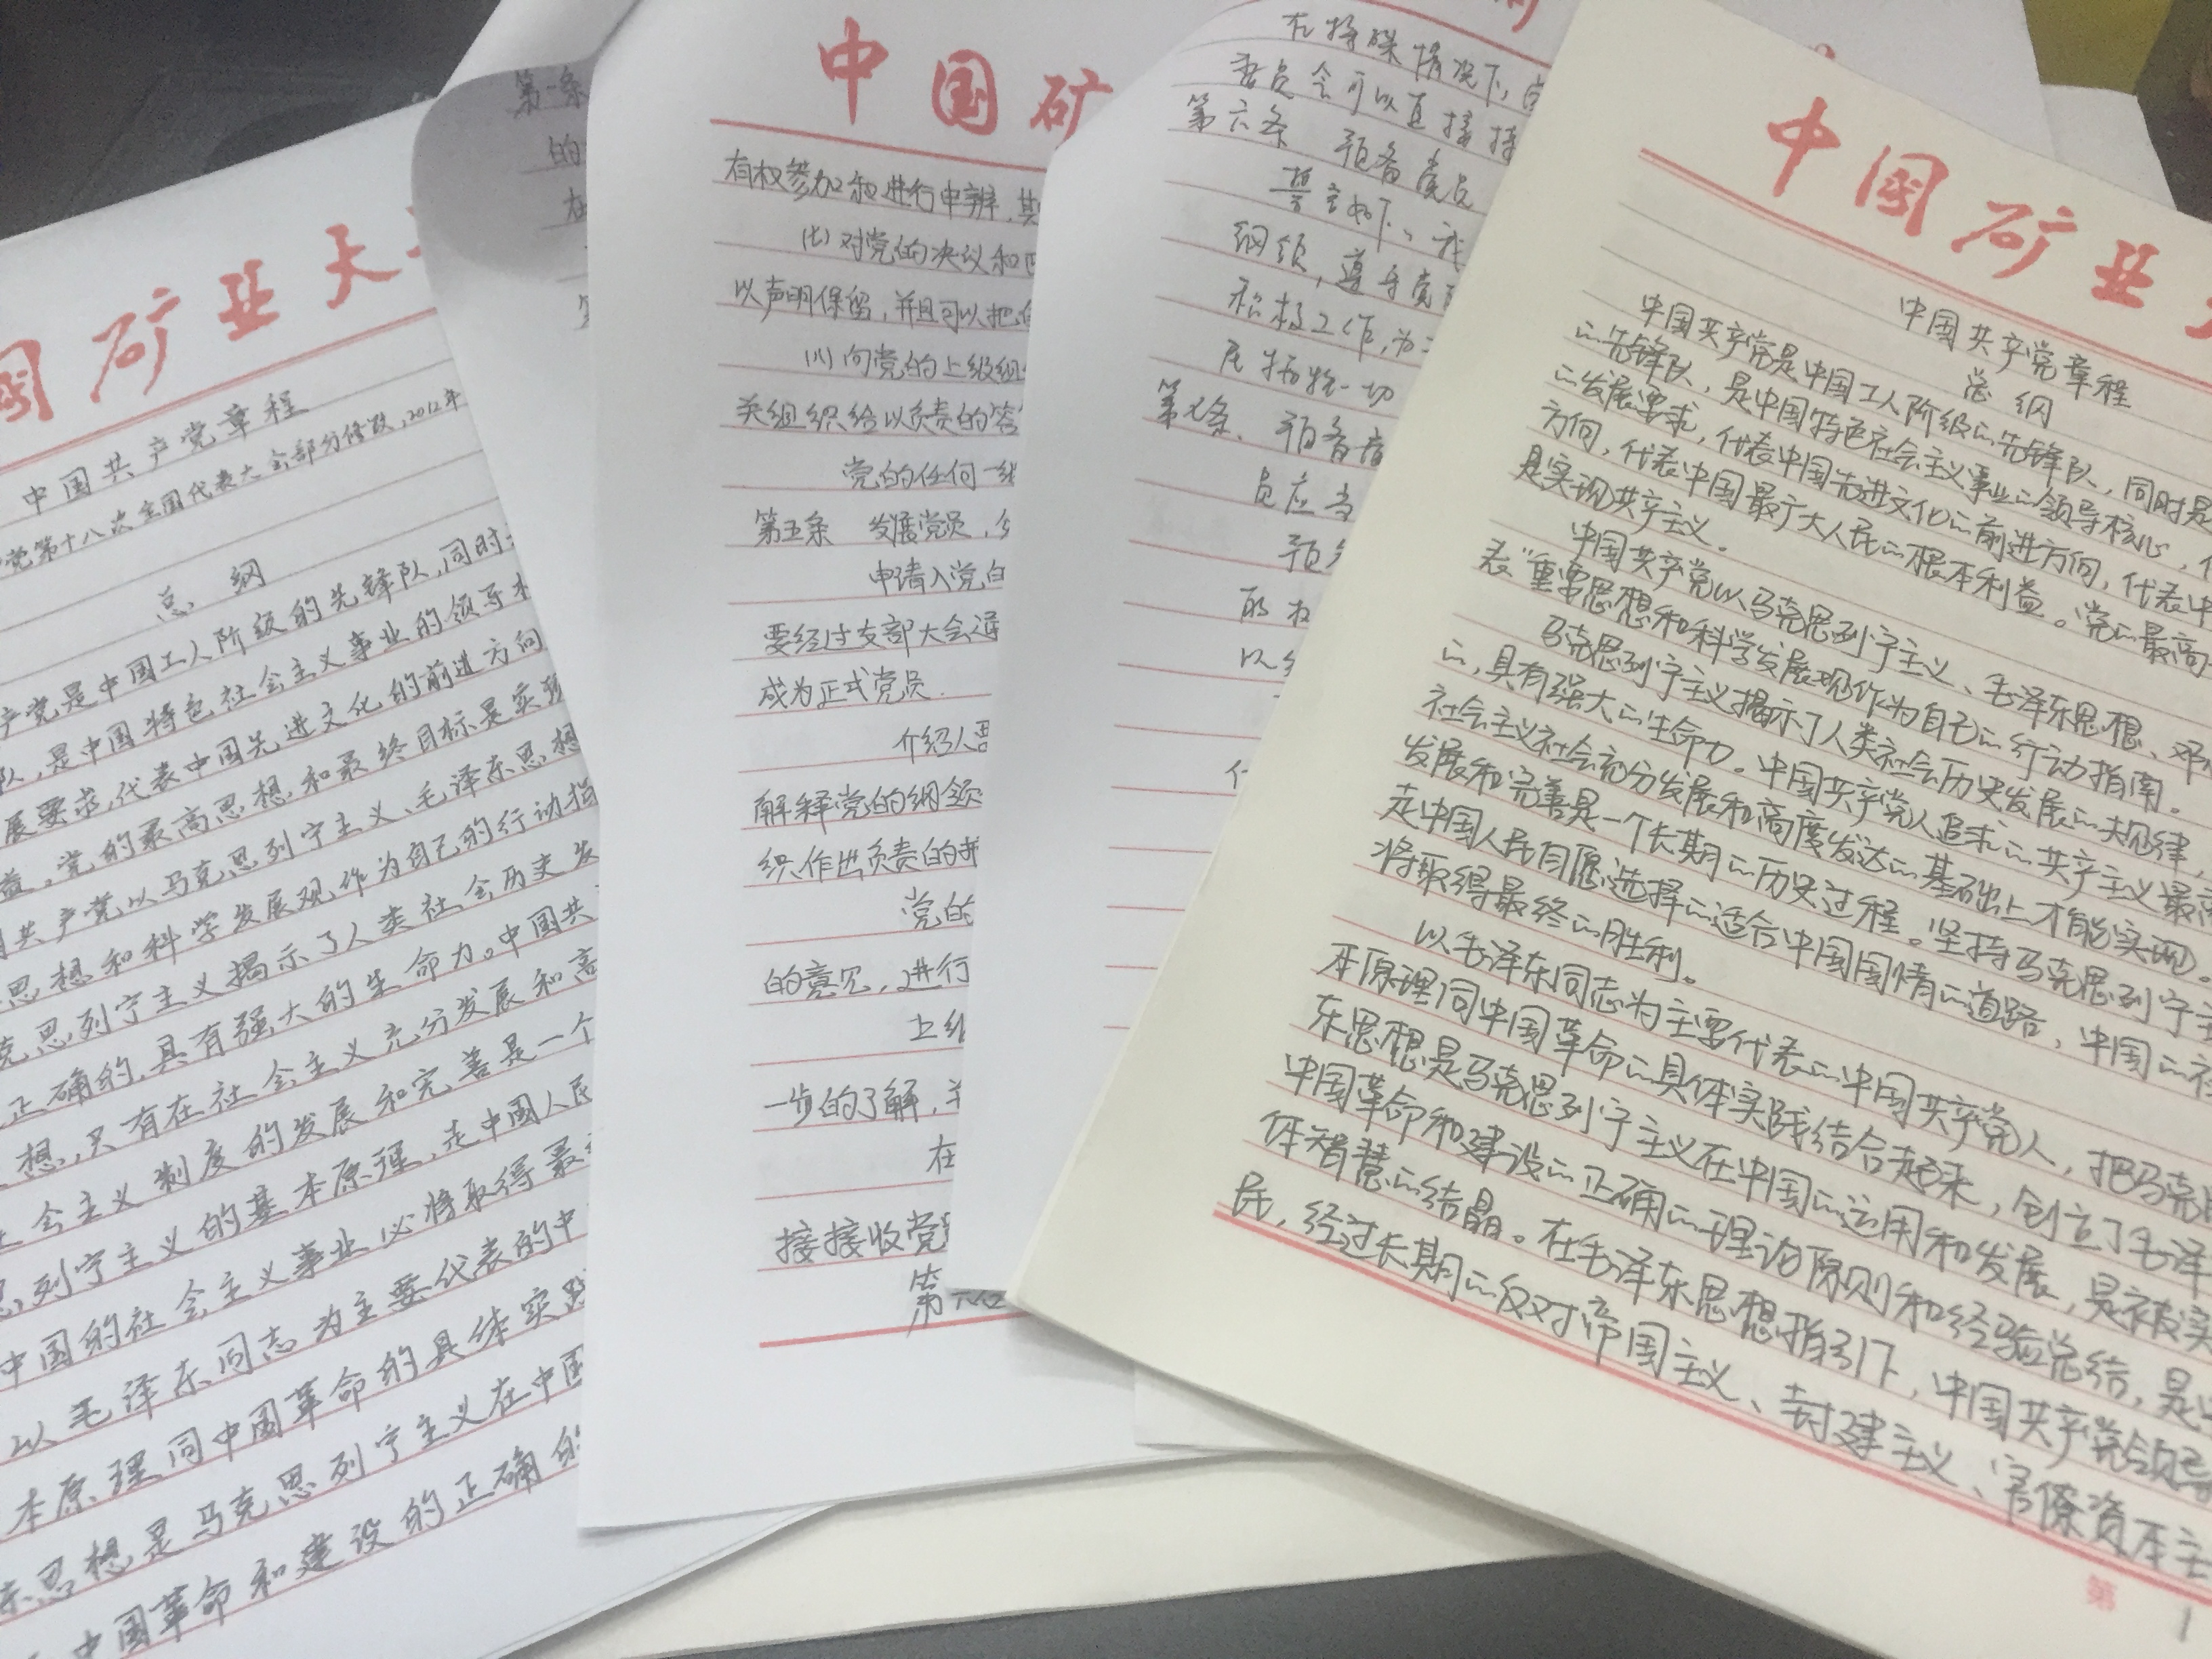 国矿业大
中国共产党章程
党第十八次全国代表大会部分修改,2012年
总纲
产党是中国工人阶级的先锋队,同时
队,是中国特色社会主义事业的领导
展要求,代表中国先进文化的前进方向
益,党的最高思想和最终目标是实现
共产党以马克思列宁主义、毛泽东思想
思想和科学发展观作为自己的行动指
克思列宁主义揭示了人类社会历史发
正确的,具有强大的生命力。中国共
想,只有在社会主义充分发展和高
会主义制度的发展和完善是一个
列宁主义的基本原理,走中国人民
中国的社会主义事业必将取得最
以毛泽东同志为主要代表的中
本原理同中国革命的具体实践
东思想是马克思列宁主义在中国
中国革命和建设的正确的
第一条
的
中国矿
有权参加和进行申辩,其
(七)对党的决议和
以声明保留,并且可以把
(八)向党的上级组
关组织给以负责的答
党的任何一级
第五条 发展党员,
申请入党
要经过支部大会通
成为正式党员.
介绍人要
解释党的纲领
织作出负责的
党的
的意见,进行
上级
一步的了解,
在
接接收党
第六
在特殊情况下,
委员会可以直接
第六条 预备党员
誓言如下:我
纲领,遵守党
积极工作,为
民牺牲一切
第七条、预备
员应当
预
的权
以
中国矿业
中国共产党章程
总纲
中国共产党是中国工人阶级的先锋队,同时是
的先锋队,是中国特色社会主义事业的领导核心,
的发展要求,代表中国先进文化的前进方向,代表中
方向,代表中国最广大人民的根本利益。党的最高
是实现共产主义。
中国共产党以马克思列宁主义、毛泽东思想、邓
表"重要思想和科学发展观作为自己的行动指南。
马克思列宁主义揭示了人类社会历史发展的规律,
的,具有强大的生命力。中国共产党人追求的共产主义最高
社会主义社会充分发展和高度发达的基础上才能实现。
发展和完善是一个长期的历史过程。坚持马克思列宁主
走中国人民自愿选择的适合中国国情的道路,中国的社
将取得最终的胜利。
以毛泽东同志为主要代表的中国共产党人,把马克思
本原理同中国革命的具体实践结合起来,创立了毛泽
东思想是马克思列宁主义在中国的运用和发展,是被实
中国革命和建设的正确的理论原则和经验总结,是
体智慧的结晶。在毛泽东思想指引下,中国共产党领导
民,经过长期的反对帝国主义、封建主义、官僚资本主
第 1